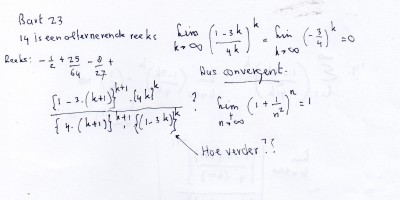 Bart 23
14 is een alternerende reeks lim k→∞ ((1-3k)/4k)^k = lim k→∞ (-3/4)^k = 0
Reeks: -1/2 + 25/64 - 8/27 +
Dus convergent.
{1-3.(k+1)}^(k+1) . {4k}^k / {4.(k+1)}^(k+1) . {(1-3k)}^k ? lim n→∞ (1 + 1/n²)^n = 1
Hoe verder??